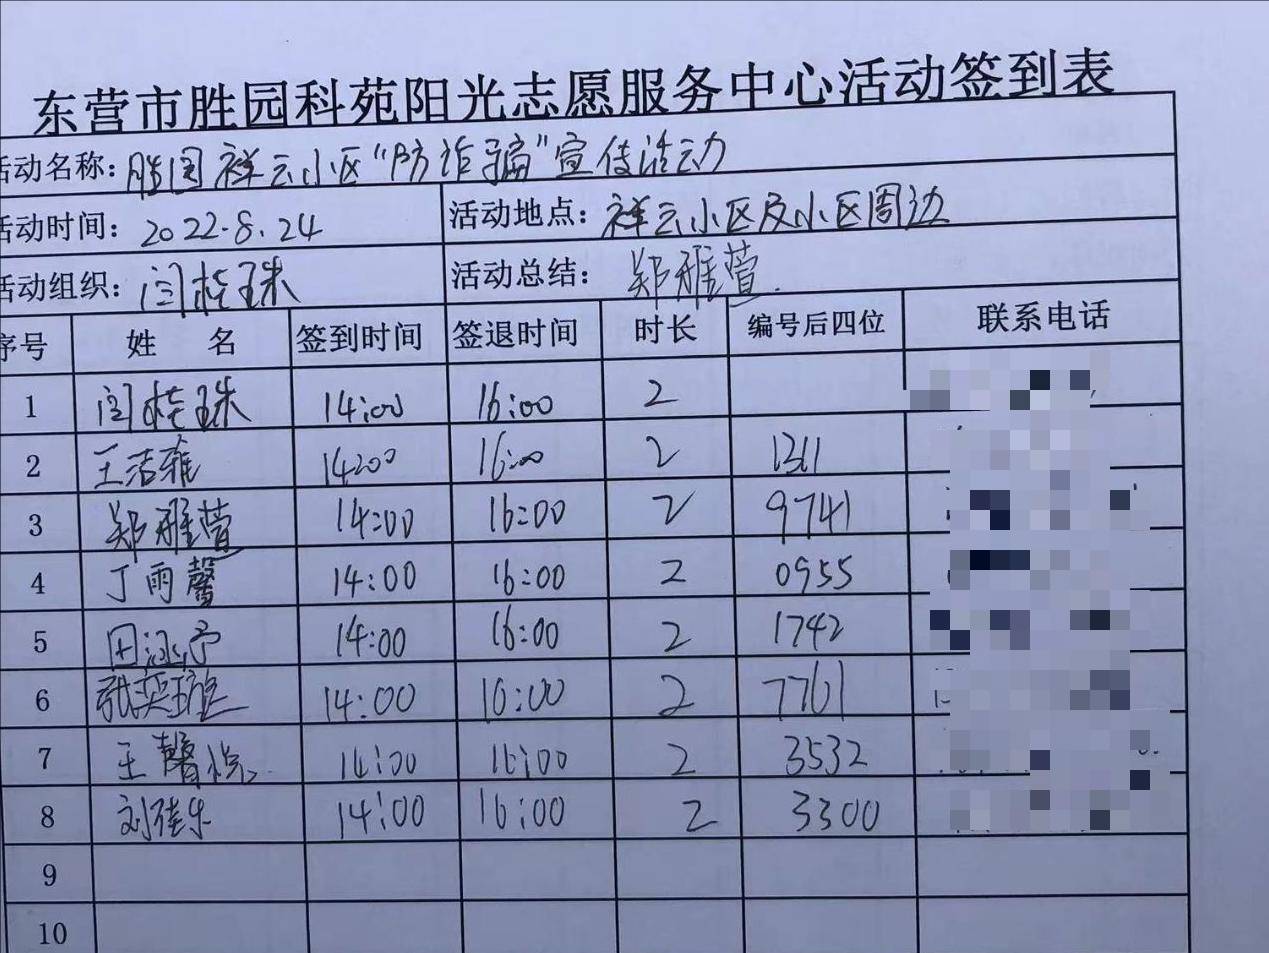 东营市胜园科苑阳光志愿服务中心活动签到表
活动名称：胜园祥云小区“防诈骗”宣传活动
活动时间：2022.8.24 活动地点：祥云小区及小区周边
活动组织：闫桂珠 活动总结：郑雅萱
序号 姓 名 签到时间 签退时间 时长 编号后四位 联系电话
1 闫桂珠 14:00 16:00 2
2 王洁雅 14:00 16:00 2 1311
3 郑雅萱 14:00 16:00 2 9741
4 丁雨馨 14:00 16:00 2 0955
5 田涵予 14:00 16:00 2 1742
6 张奕璇 14:00 16:00 2 7761
7 王馨悦 14:00 16:00 2 3532
8 刘佳乐 14:00 16:00 2 3300
9
10